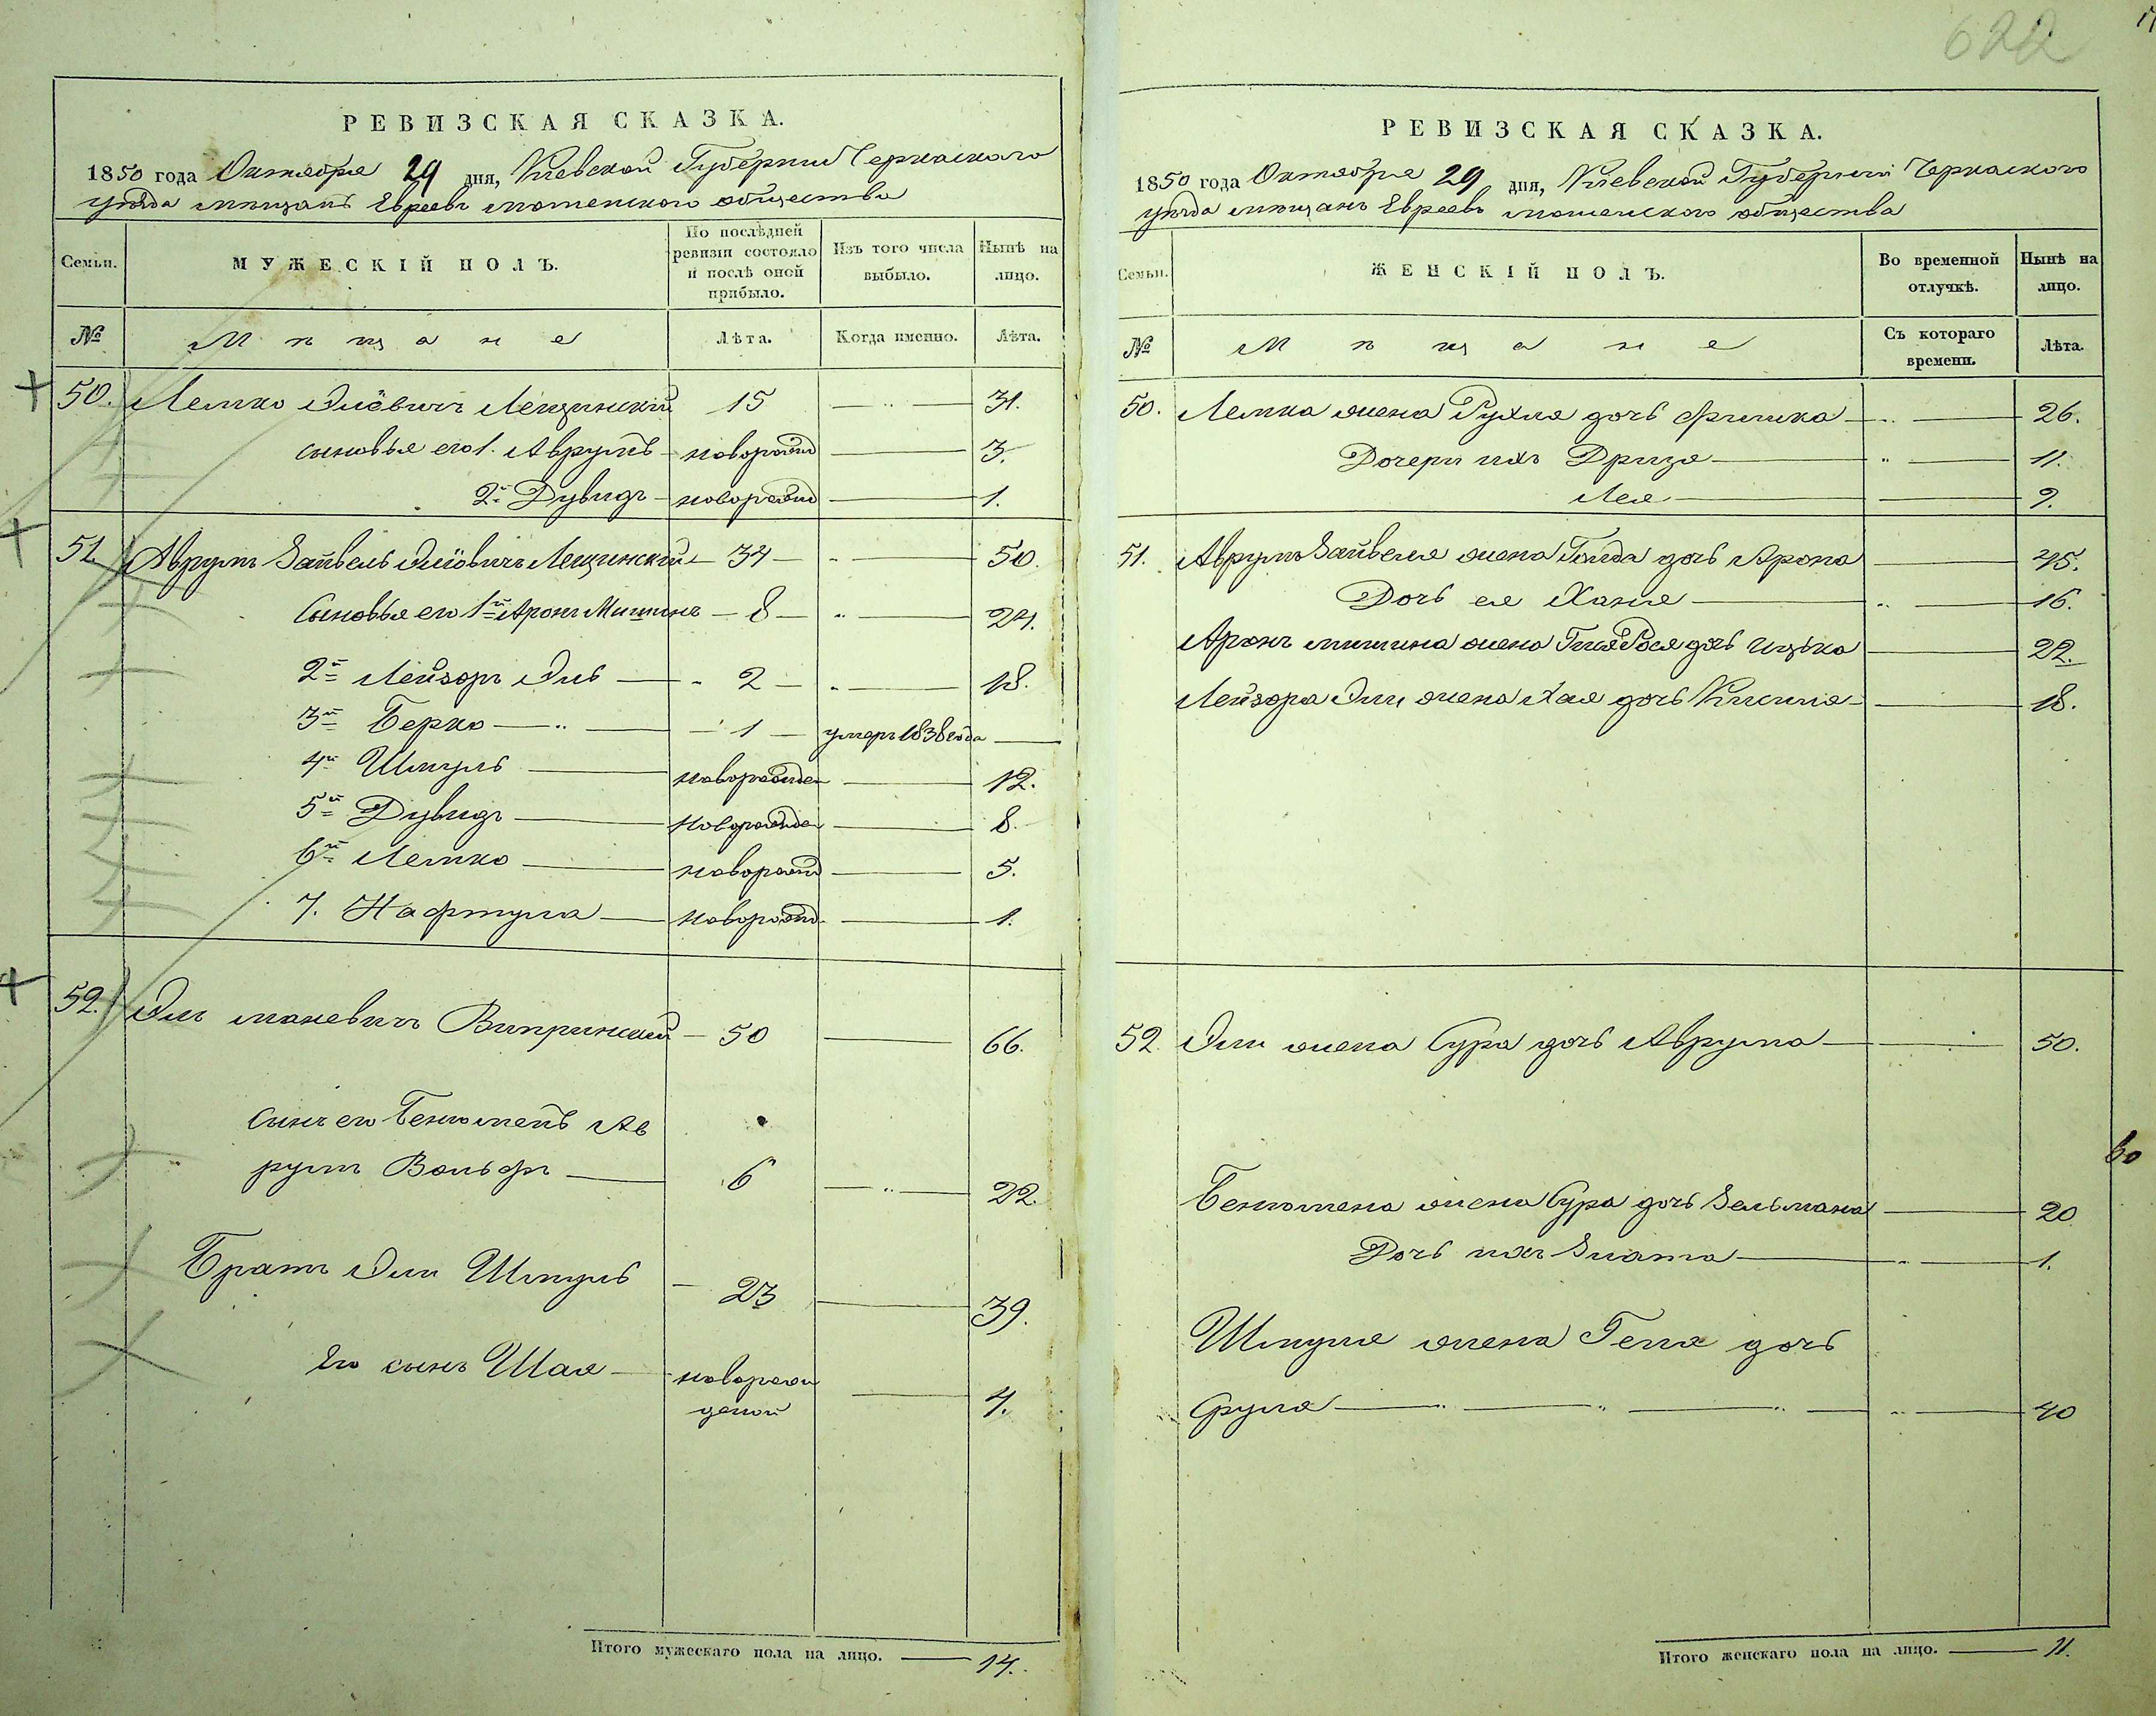 622
РЕВИЗСКАЯ СКАЗКА.
1850 года Октября 29 дня, Киевской Губернии Черкаского
уѣзда мѣщанъ Евреевъ мошенского общества
Семьи.
МУЖЕСКІЙ ПОЛЪ.
По послѣдней ревизіи состояло и послѣ оной прибыло.
Изъ того числа выбыло.
Нынѣ на лицо.
№ Мѣщане Лѣта. Когда именно. Лѣта.
50. Лемко Элёвичъ Лещинскій 15 31.
сыновья его 1. Аврумъ новорожд 3.
2й Дувидъ новорожд 1.
51. Аврумъ Зайвель Эліовичъ Лещинскій 34 50.
Сыновья его 1й Аронъ Мишинъ 8 24.
2й Лейзоръ Эль 2 18.
3й Берко 1 умеръ 1838 года
4й Шмуль новорожден 12.
5й Дувидъ новорожден 8.
6й Лемко новорожд 5.
7. Нафтула новорожд 1.
52. Эль маневичъ Випринскій 50 66.
Сынъ его Бенюменъ Ав
румъ Вольфъ 6 22.
Братъ Эли Шмуль 23 39.
Его сынъ Шая новорож
деной 4.
Итого мужескаго пола на лицо. 14.
РЕВИЗСКАЯ СКАЗКА.
1850 года Октября 29 дня, Киевской Губерніи Черкаского
уѣзда мѣщанъ Евреевъ мошенского общества
Семьи.
ЖЕНСКІЙ ПОЛЪ.
Во временной отлучкѣ.
Нынѣ на лицо.
№ Мѣщане Съ котораго времени. Лѣта.
50. Лемка жена Рухля дочь Фришка 26.
Дочери ихъ Дризя 11.
Лея 9.
51. Аврумъ Зайвеля жена Голда дочь Арона 45.
Дочь ея Ханя 16.
Аронъ мишина жена Рося дочь Ицька 22.
Лейзора Эли жена Хая дочь Кисиля 18.
52 Эли жена Сура дочь Аврума 50.
Бенюмена жена Сура дочь Зельмана 20
Дочь ихъ Злата 1.
Шмуля жена Геня дочь
Сруля 40
Итого женскаго пола на лицо. 11.